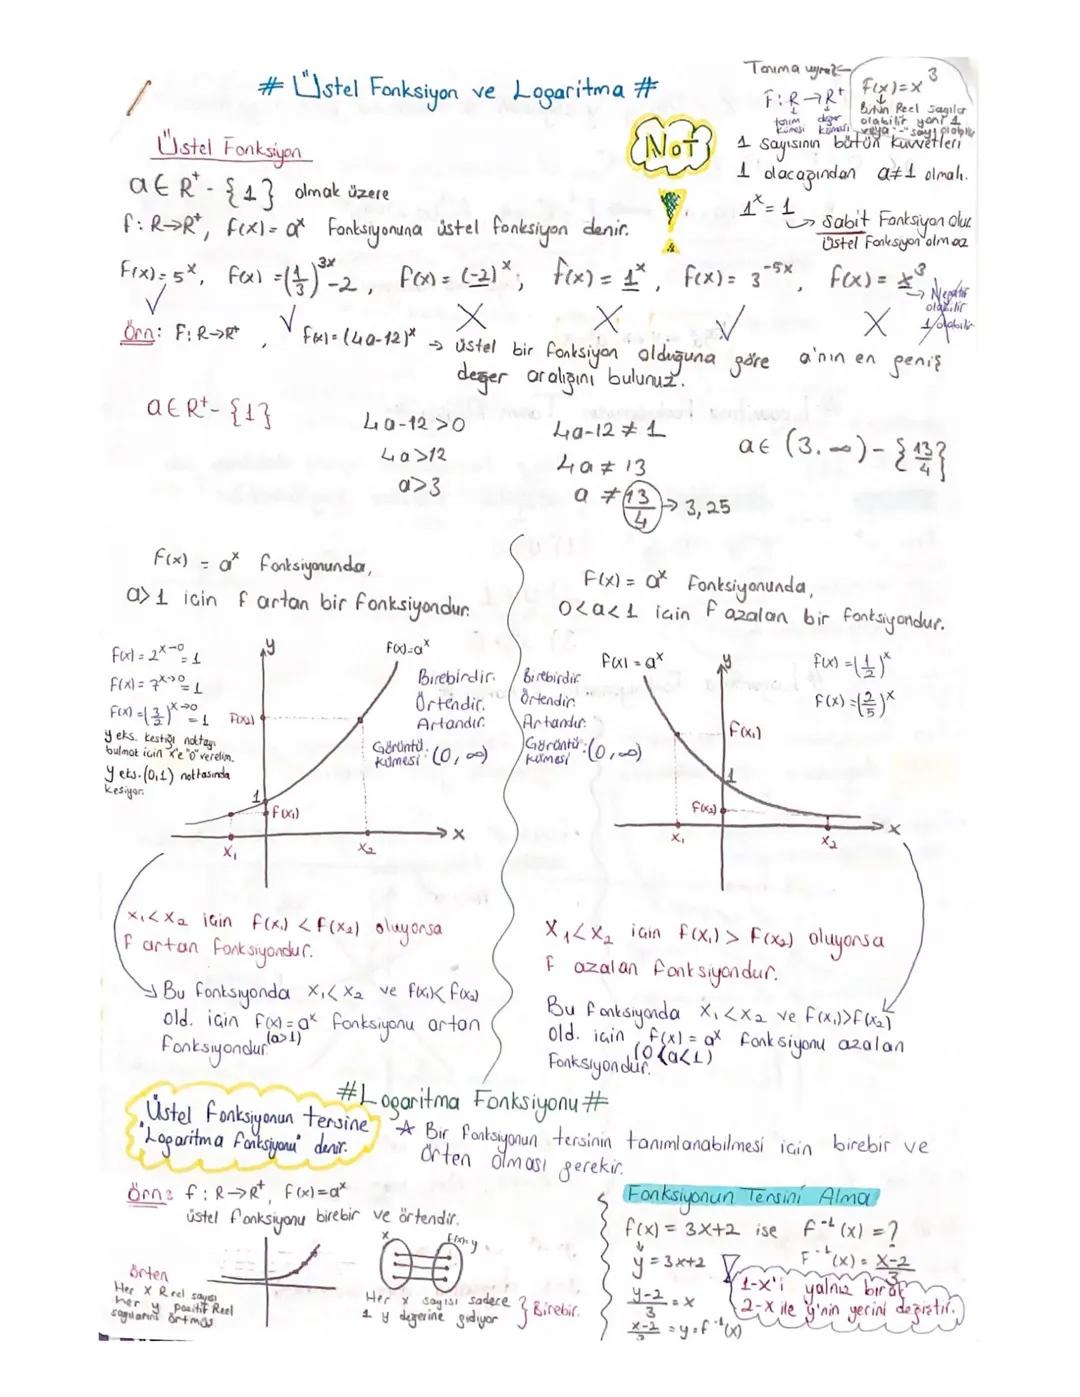 # Üstel Fonksiyon ve Logaritma #
Tanıma uyma
F: R→R⁺
tanım kümesi değer kümesi
F(x)=x³
Bütün Reel Sayılar
olabilir yani 1
veya "-" sayı olabilir
Not
!
1 Sayısının bütün kuvvetleri
1 olacağından a≠1 olmalı.
1ˣ = 1
→ Sabit Fonksiyon olur
üstel Fonksiyon olmaz
Üstel Fonksiyon
a ∈ R⁺ - {1} olmak üzere
f: R→R⁺, f(x) = aˣ Fonksiyonuna üstel fonksiyon denir.
F(x) = 5ˣ, F(x) = (1/3)³ˣ - 2, f(x) = (-2)ˣ, f(x) = 1ˣ, f(x) = 3⁻⁵ˣ, f(x) = x³
→ Negatif
olabilir
1 olabilir
✓ √ X X √ X
Örn: F: R→R⁺, f(x) = (4a-12)ˣ → üstel bir fonksiyon olduğuna göre a'nın en geniş
değer aralığını bulunuz.
a ∈ R⁺ - {1}
4a-12 > 0
4a > 12
a > 3
4a-12 ≠ 1
4a ≠ 13
a ≠ 13/4 → 3,25
a ∈ (3. ∞) - {13/4}
F(x) = aˣ fonksiyonunda,
a > 1 için f artan bir fonksiyondur.
F(x) = 2ˣ→⁰ = 1
F(x) = 7ˣ→⁰ = 1
F(x) = (3/2)ˣ→⁰ = 1
y eks. kestiği noktayı
bulmak için x'e "0" verelim.
y eks. (0,1) noktasında
kesiyor.
y
F(x)=aˣ
F(x₂)
1
F(x₁)
x₁
x₂
x
Birebirdir.
Örtendir.
Artandır.
Görüntü kümesi: (0, ∞)
F(x) = aˣ Fonksiyonunda,
0<a<1 için F azalan bir fonksiyondur.
Birebirdir
Örtendir
Artandır
Görüntü kümesi: (0, ∞)
F(x) = aˣ
y
F(x₁)
1
F(x₂)
x₁
x₂
x
f(x) = (1/2)ˣ
f(x) = (2/5)ˣ
x₁ < x₂ için f(x₁) < f(x₂) oluyorsa
F artan fonksiyondur.
→ Bu fonksiyonda x₁ < x₂ ve f(x₁) < f(x₂)
old. için F(x) = aˣ fonksiyonu artan
fonksiyondur. (a>1)
x₁ < x₂ için f(x₁) > F(x₂) oluyorsa
F azalan fonksiyondur.
Bu fonksiyonda x₁ < x₂ ve f(x₁) > f(x₂)
old. için f(x) = aˣ fonksiyonu azalan
Fonksiyondur. (0<a<1)
#Logaritma Fonksiyonu#
Üstel fonksiyonun tersine
"Logaritma fonksiyonu" denir.
☆ Bir fonksiyonun tersinin tanımlanabilmesi için birebir ve
örten olması gerekir.
Örn: f: R→R⁺, f(x)=aˣ
üstel fonksiyonu birebir ve örtendir.
örten
Her x Reel sayısı
her y pozitif Reel
sayılarını örtmüş
x
f(x)=y
Her x sayısı sadece
1 y değerine gidiyor
} Birebir.
Fonksiyonun Tersini Alma
f(x) = 3x+2 ise f⁻¹(x) = ?
y = 3x+2
y-2/3 = x
x-2/3 = y = f⁻¹(x)
F⁻¹(x) = x-2/3
1-x'i yalnız bırak
2-x ile y'nin yerini değiştir.